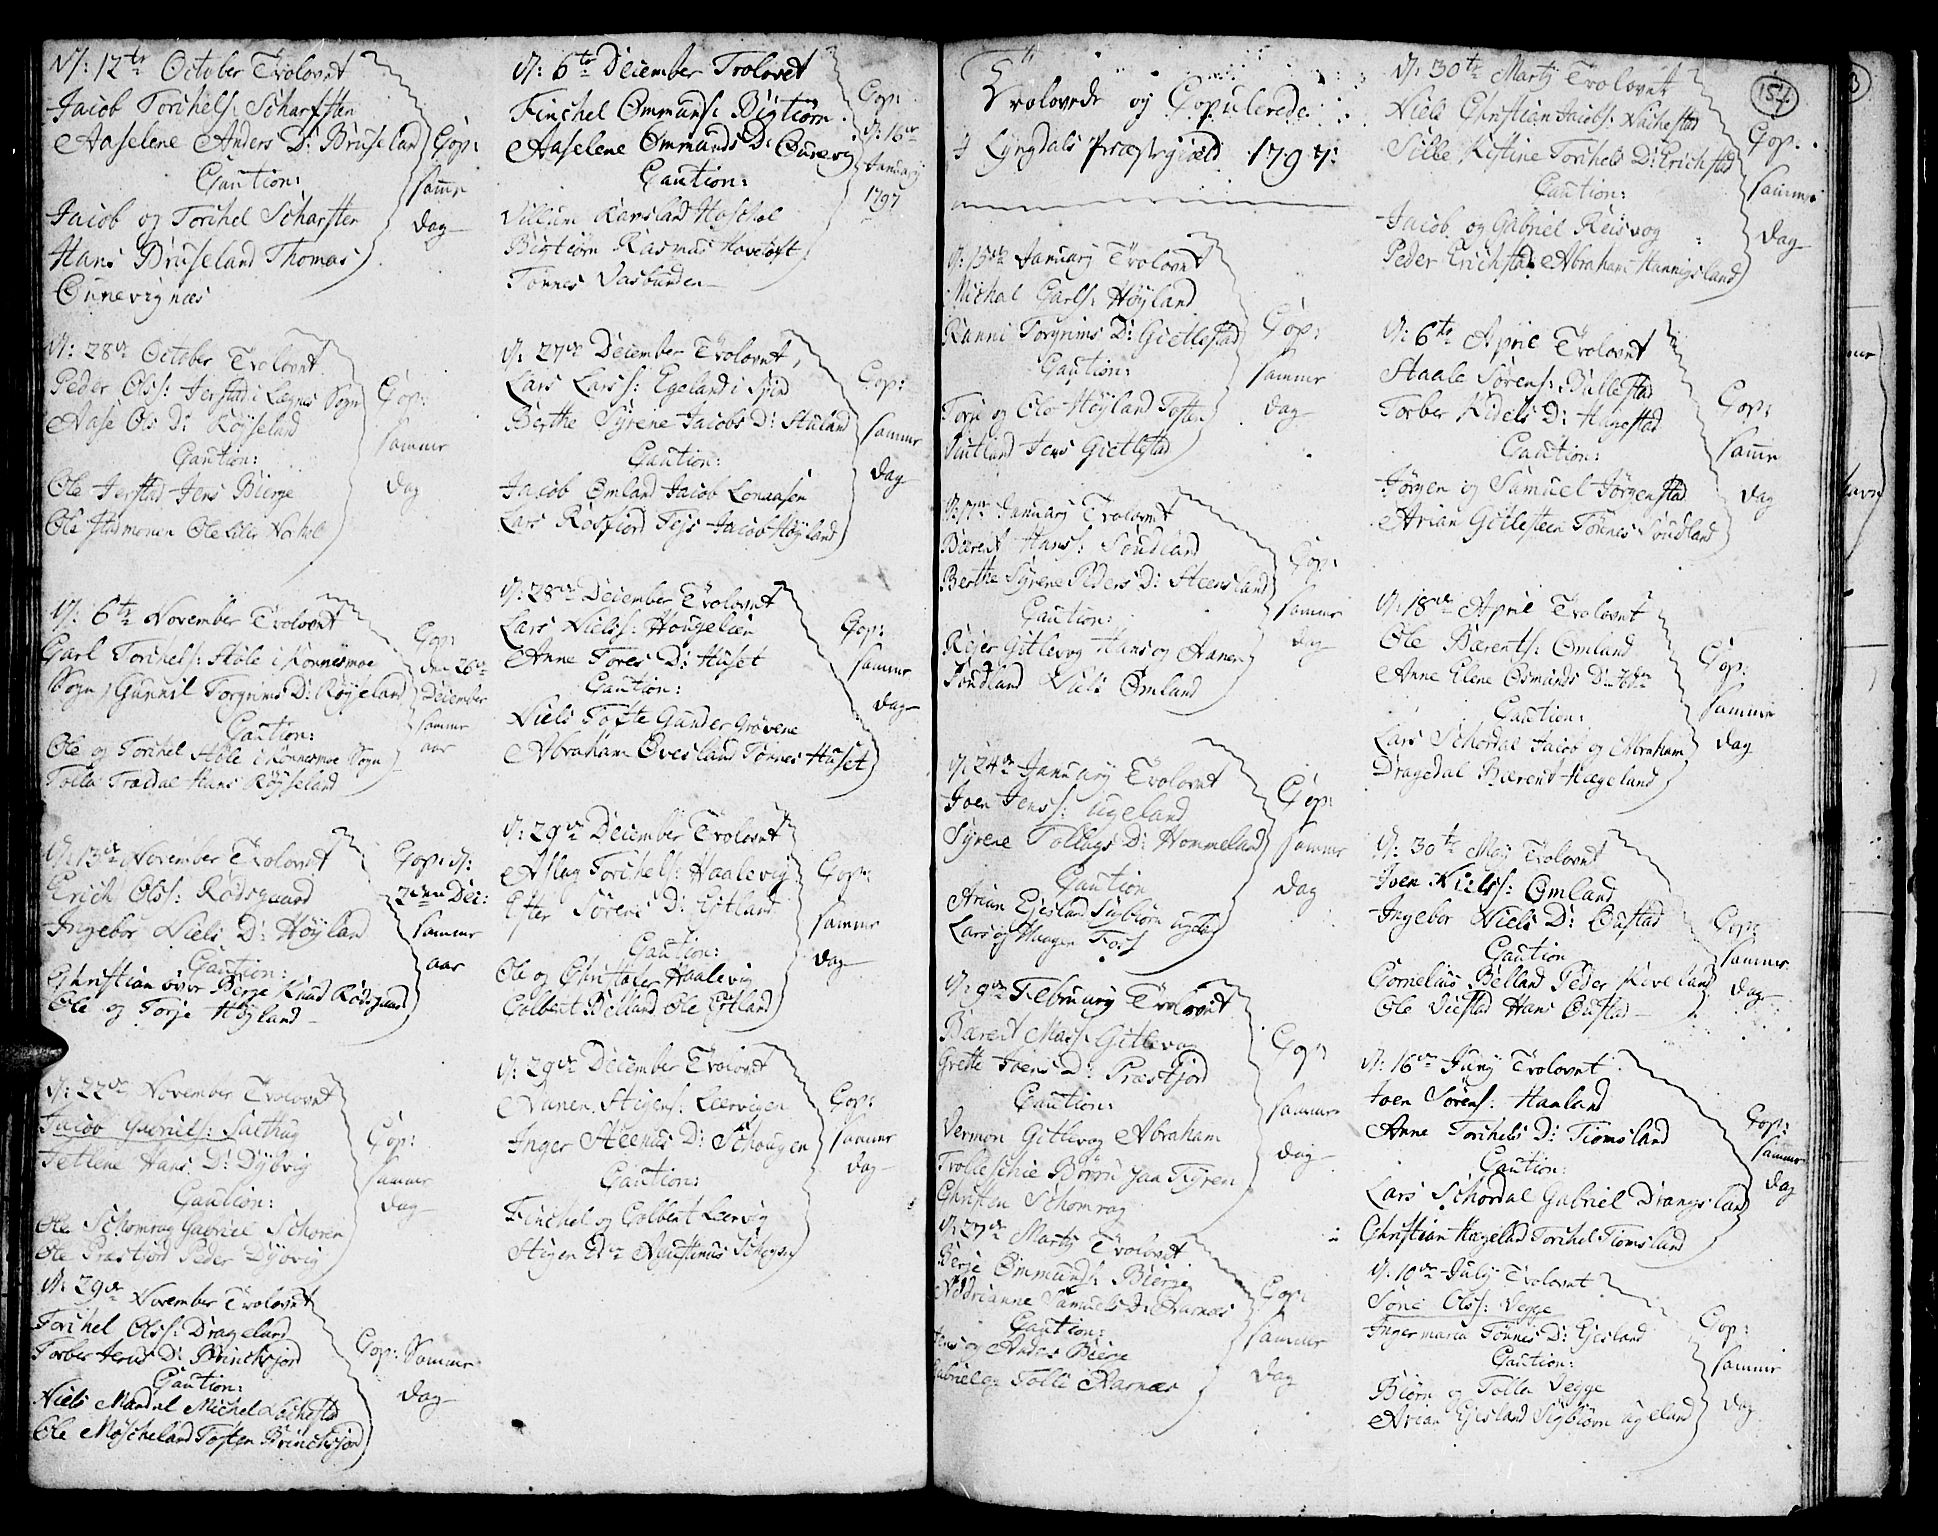 D: 12te October Trolovet
Jacob Torchels: Scharsten
Aaselene Anders D: Bruseland
Caution:
Jacob og Torchel Scharsten
Hans Bruseland Thomas
Ounevignæs
Cop:
samme
Dag
D: 28de October Trolovet
Peder Ols: Jerstad i Sogn
Aase Ols D: Røyseland
Caution:
Ole Jerstad Jens Bierge
Ole Ole
Cop:
samme
Dag
D: 6te November Trolovet
Carl Torchels: Hole i Konnesmoe
Sogn, Gunnil Torgrims D: Røyseland
Caution:
Ole og Torchel Hole i Konnesmoe Sogn
Tolla Trædal Hans Røyseland
Cop:
den 26de
December
samme
aar
D: 13de November Trolovet
Erich Ols: Rødsgaard
Ingebor Niels D: Høyland
Caution:
Christian øvre Berge Knud Rødsgaard
Ole og Torje Høyland
Cop: D:
27de Dec:
samme
aar
D: 22de November Trolovet
Jacob Gabriels: Salthug
Jetlene Hans D: Dybvig
Caution:
Ole Schomrag Gabriel Schoven
Ole Præstfiord Peder Dybvig
Cop:
samme
Dag
D: 29de November Trolovet
Torchel Ols: Drageland
Torber Jens D: Brinchsiord
Caution:
Niels Mandal Michel Lochestad
Ole Møscheland Tosten Brinchsiord
Cop: Samme
Dag
D: 6te December Trolovet
Finchel Ommunds: Bigtiørn
Aaselene Ommunds D: Ounevig
Caution:
Villum Ramsland Haschal
Bigtiørn Rasmus Haveloft
Tønnes Vasbunden
Cop:
D: 16de
January
1797
D: 27de December Trolovet,
Lars Lars: Egeland i Spin
Berthe Syrene Jacobs D: Stuland
Caution:
Jacob Omland Jacob Lonaasen
Lars Rosfiord Teis Jacob Høyland
Cop:
samme
Dag
D: 28de December Trolovet
Lars Niels: Hougelien
Anne Tores D: Huset
Caution:
Niels Tofte Gunder Grøvene
Abraham Ovesland Tønnes Huset
Cop:
samme
Dag
D: 29de December Trolovet
Aslag Torchels: Haalevig
Ester Sørens D: Estland
Caution:
Ole og Christofer Haalevig
Colbent Belland Ole Estland
Cop:
samme
Dag
D: 29de December Trolovet
Aanen Stigens: Leervigen
Inger Steenus D: Schougen
Caution:
Finchel og Colbent Leervig
Stigen Augustinus Schougen
Cop:
samme
Dag
Trolovede og Copulerede
I Lyngdals Præstegield 1797:
157
D: 15de January Trolovet
Michal Carls: Høyland
Ranni Torgrims D: Gietlestad
Caution:
Tore og Ole Høyland Tosten
Jens Gietlestad
Cop:
samme
Dag
D: 17de January Trolovet
Bærent Hans: Soudland
Berthe Syrene Peders D: Steensland
Caution:
Reier Gitlevog Hans og Aanen
Soudland Niels Omland
Cop:
samme
Dag
D: 24de January Trolovet
Joen Jens: Ugeland
Syrene Tollags D: Hommeland
Caution
Arian Eiesland Sigbiørn Ugeland
Lars og Haagen Fors
Cop:
samme
Dag
D: 9de February Trolovet
Bærent Mas: Gitlevog
Grethe Joens D: Præstfiord
Caution:
Vermon Gitlevog Abraham
Trolleschie Biørn Jan Fyren
Christen Schomrag
Cop:
samme
Dag
D: 27de Marty Trolovet
Berje Ommunds: Bierge
Addrianne Samuels D: Aarnæs
Caution:
Jens og Anders Bierge
Gabriel og Tolli Aarnæs
Cop:
samme
Dag
D: 30te Marty Trolovet
Niels Christian Jacobs: Nachestad
Sille Kistine Torchels D: Erichstad
Caution:
Jacob og Gabriel Reisvog
Peder Erichstad Abraham Hannigsland
Cop:
samme
Dag
D: 6te April Trolovet
Staale Sørens: Bullestad
Torber Kidels D: Hagestad
Caution:
Jørgen og Samuel Jørgenstad
Arian Gitlesteen Tønnes Soudland
Cop:
samme
Dag
D: 18de April Trolovet
Ole Bærents: Omland
Anne Elene Osmunds D:
Caution:
Lars Schordal Jacob og Abraham
Dragedal Bærent Hageland
Cop:
samme
Dag
D: 30te May Trolovet
Joen Niels: Omland
Ingebor Niels D: Oustad
Caution
Cornelius Belland Peder Kiveland
Ole Veestad Hans Oustad
Cop:
samme
Dag
D: 16de Juny Trolovet
Joen Sørens: Haaland
Anne Torchels D: Tiomsland
Caution:
Lars Schordal Gabriel Drangsland
Christian Hageland Torchel Tiomsland
Cop:
samme
Dag
D: 10de July Trolovet
Søne Ols: Vegge
Ingermaria Tønnes D: Eiesland
Caution:
Biørn og Tolla Vegge
Arian Eiesland Sigbiørn Ugeland
Cop:
samme
Dag